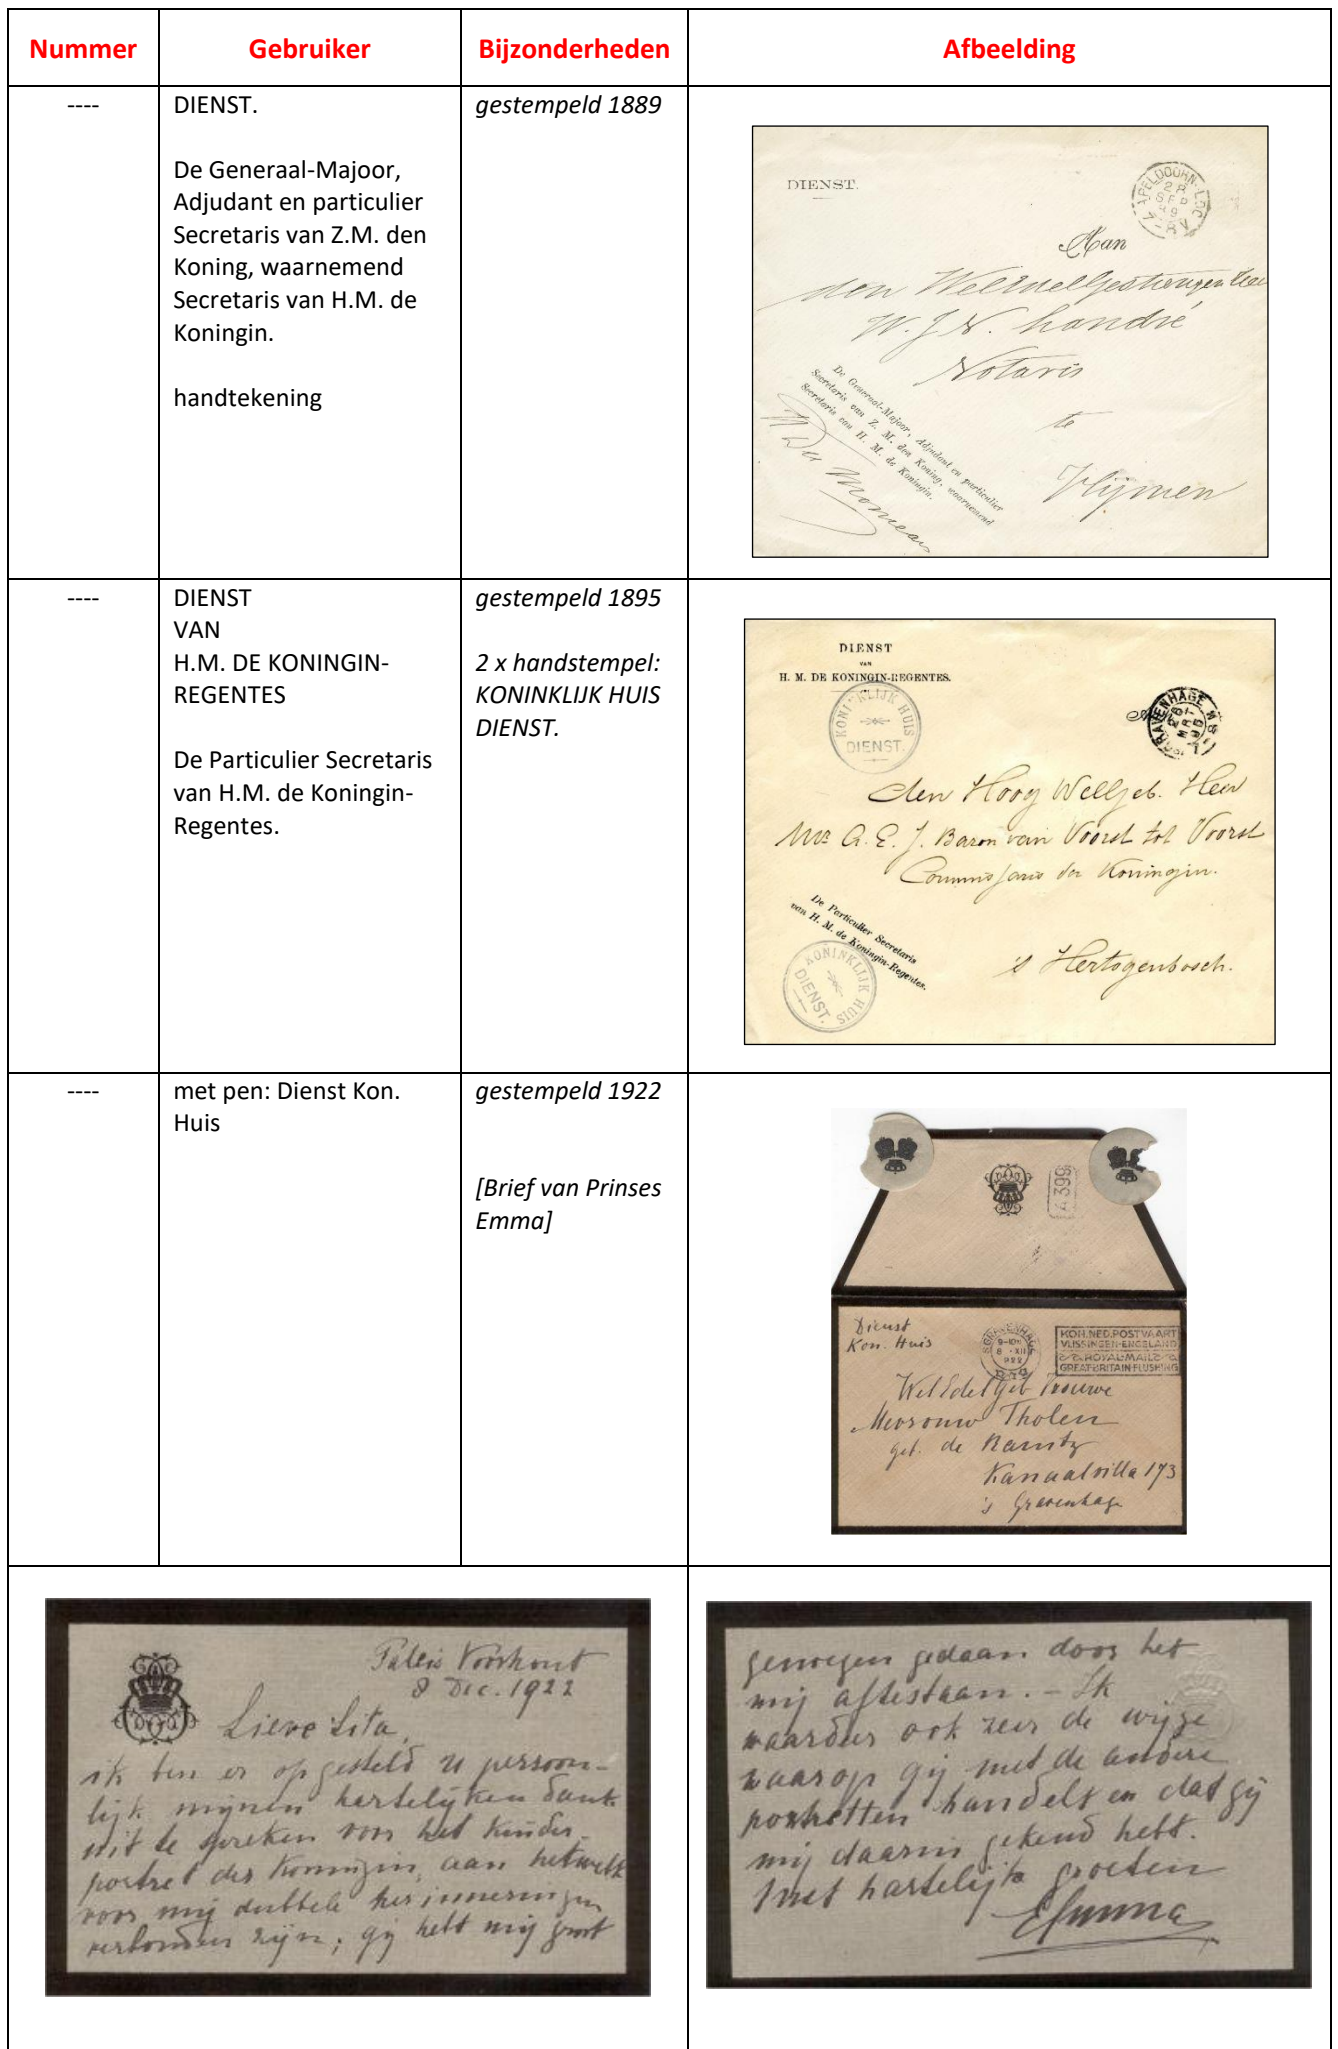 Nummer
Gebruiker
Bijzonderheden
Afbeelding
----
DIENST.
De Generaal-Majoor,
Adjudant en particulier
Secretaris van Z.M. den
Koning, waarnemend
Secretaris van H.M. de
Koningin.
handtekening
gestempeld 1889
DIENST.
APELDOORN-LOC
7-8V
Aan
den
W. J. N. Landré
Notaris
te
Vlijmen
De Generaal-Majoor, Adjudant en particulier
Secretaris van Z. M. den Koning, waarnemend
Secretaris van H. M. de Koningin.
----
DIENST
VAN
H.M. DE KONINGIN-
REGENTES
De Particulier Secretaris
van H.M. de Koningin-
Regentes.
gestempeld 1895
2 x handstempel:
KONINKLIJK HUIS
DIENST.
DIENST
VAN
H. M. DE KONINGIN-REGENTES.
KONINKLIJK HUIS
DIENST.
den Hoog Welgeb. Heer
Mr. A. E. J. Baron van Voorst tot Voorst
Commissaris der Koningin.
's Hertogenbosch.
De Particulier Secretaris
van H. M. de Koningin-Regentes.
KONINKLIJK HUIS
DIENST.
----
met pen: Dienst Kon.
Huis
gestempeld 1922
[Brief van Prinses
Emma]
4399
Dienst
Kon. Huis
'S GRAVENHAGE
8 XII
922
KON. NED. POSTVAART
VLISSINGEN-ENGELAND
ROYAL-MAIL
GREAT BRITAIN-FLUSHING
WelEdelGeb Vrouwe
Mevrouw Tholen
geb. de
Kanaalvilla 173
's Gravenhage
Paleis Voorhout
8 Dec. 1922
Lieve Lita,
ik ben er op gesteld u persoon-
lijk mijnen hartelijken dank
uit te spreken voor het kinder-
portret der Koningin, aan hetwelk
voor mij dubbele herinneringen
verbonden zijn; gij hebt mij groot
genoegen gedaan door het
mij aftestaan. - Ik
waardeer ook zeer de wijze
waarop gij met de andere
portretten handelt en dat gij
mij daarin gekend hebt.
Met hartelijke groeten
Emma